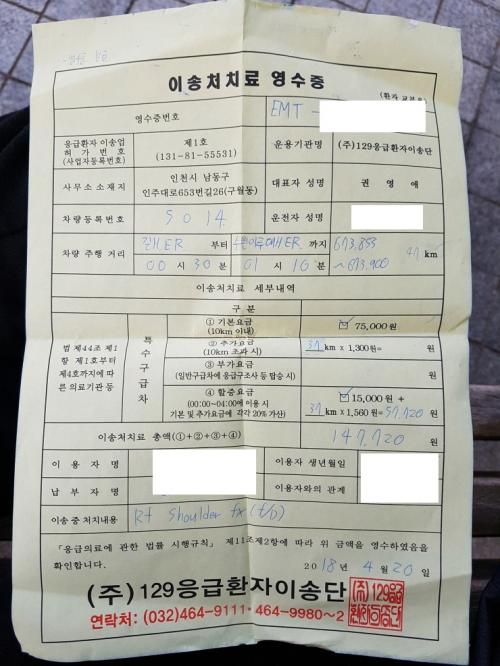 이송처치료 영수증
(환자
영수증번호
EMT -
응급환자 이송업 허가 번호 (사업자등록번호)
제1호 (131-81-55531)
운용기관명
(주)129응급환자이송단
사무소 소재지
인천시 남동구 인주대로653번길26(구월동)
대표자 성명
권 영 애
차량등록번호
5014
운전자 성명
차량 주행 거리
길HER 부터
HER 까지
673.853
00 시 30 분
01 시 10 분
~673.900
47 km
이송처치료 세부내역
구 분
법 제44조 제1항 제1호부터 제4호까지에 따른 의료기관 등
특수구급차
① 기본요금 (10km 이내)
☑ 75,000원
② 추가요금 (10km 초과 시)
37 km x 1,300원= 원
③ 부가요금 (일반구급차에 응급구조사 등 탑승 시)
원
④ 할증요금 (00:00~04:00에 이용 시 기본 및 추가요금에 각각 20% 가산)
☑ 15,000원 +
37 km x 1,560원= 57,720 원
이송처치료 총액(①+②+③+④)
147,720 원
이 용 자 명
이용자 생년월일
납 부 자 명
이용자와의 관계
이송중 처치내용
Rt shoulder fx (t/o)
「응급의료에 관한 법률 시행규칙」 제11조제2항에 따라 위 금액을 영수하였음을
확인합니다.
2018 년 4 월 20 일
(주)129응급환자이송단
(주)129응급환자이송단
연락처: (032)464-9111·464-9980~2